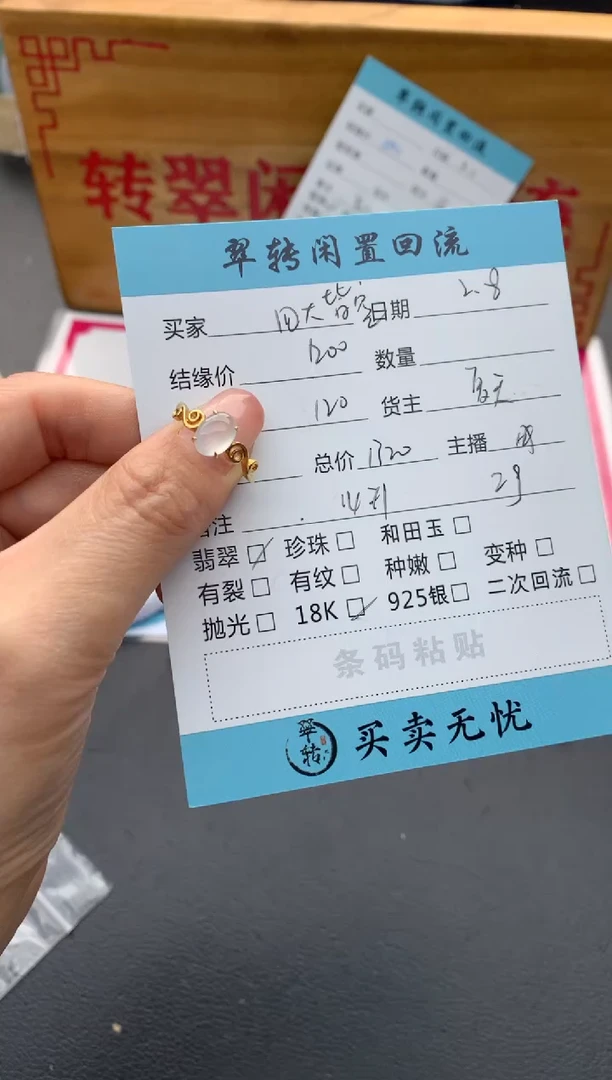 转翠闲
翠转闲置回流
翠转闲置回流
买家 四大皆空 日期 2.8
结缘价 1200 数量
120 货主 夏天
总价 1320 主播
备注 2g
翡翠 珍珠 和田玉
有裂 有纹 种嫩 变种
抛光 18K 925银 二次回流
条码粘贴
翠转 买卖无忧